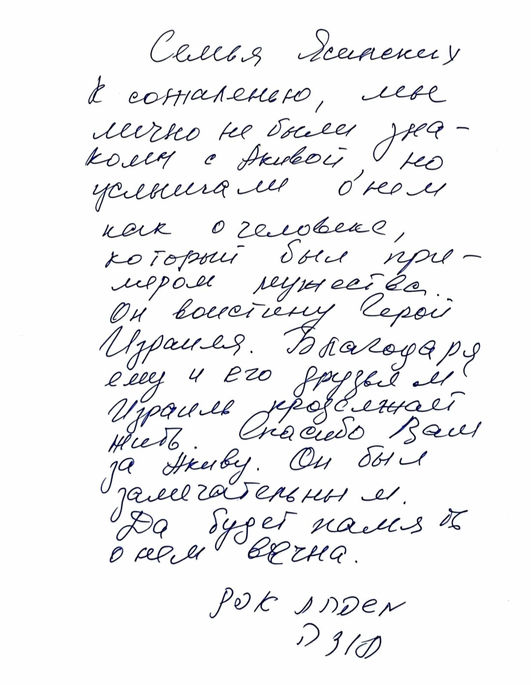 Семья Ясинских
К сожаленью, мы
лично не были зна-
комы с Акивой, но
услышали о нем
как о человеке,
который был при-
мером мужества.
Он воистину Герой
Израиля. Благодаря
ему и его друзьям
Израиль продолжает
жить. Спасибо Вам
за Акиву. Он был
замечательным.
Да будет память
о нем вечна.